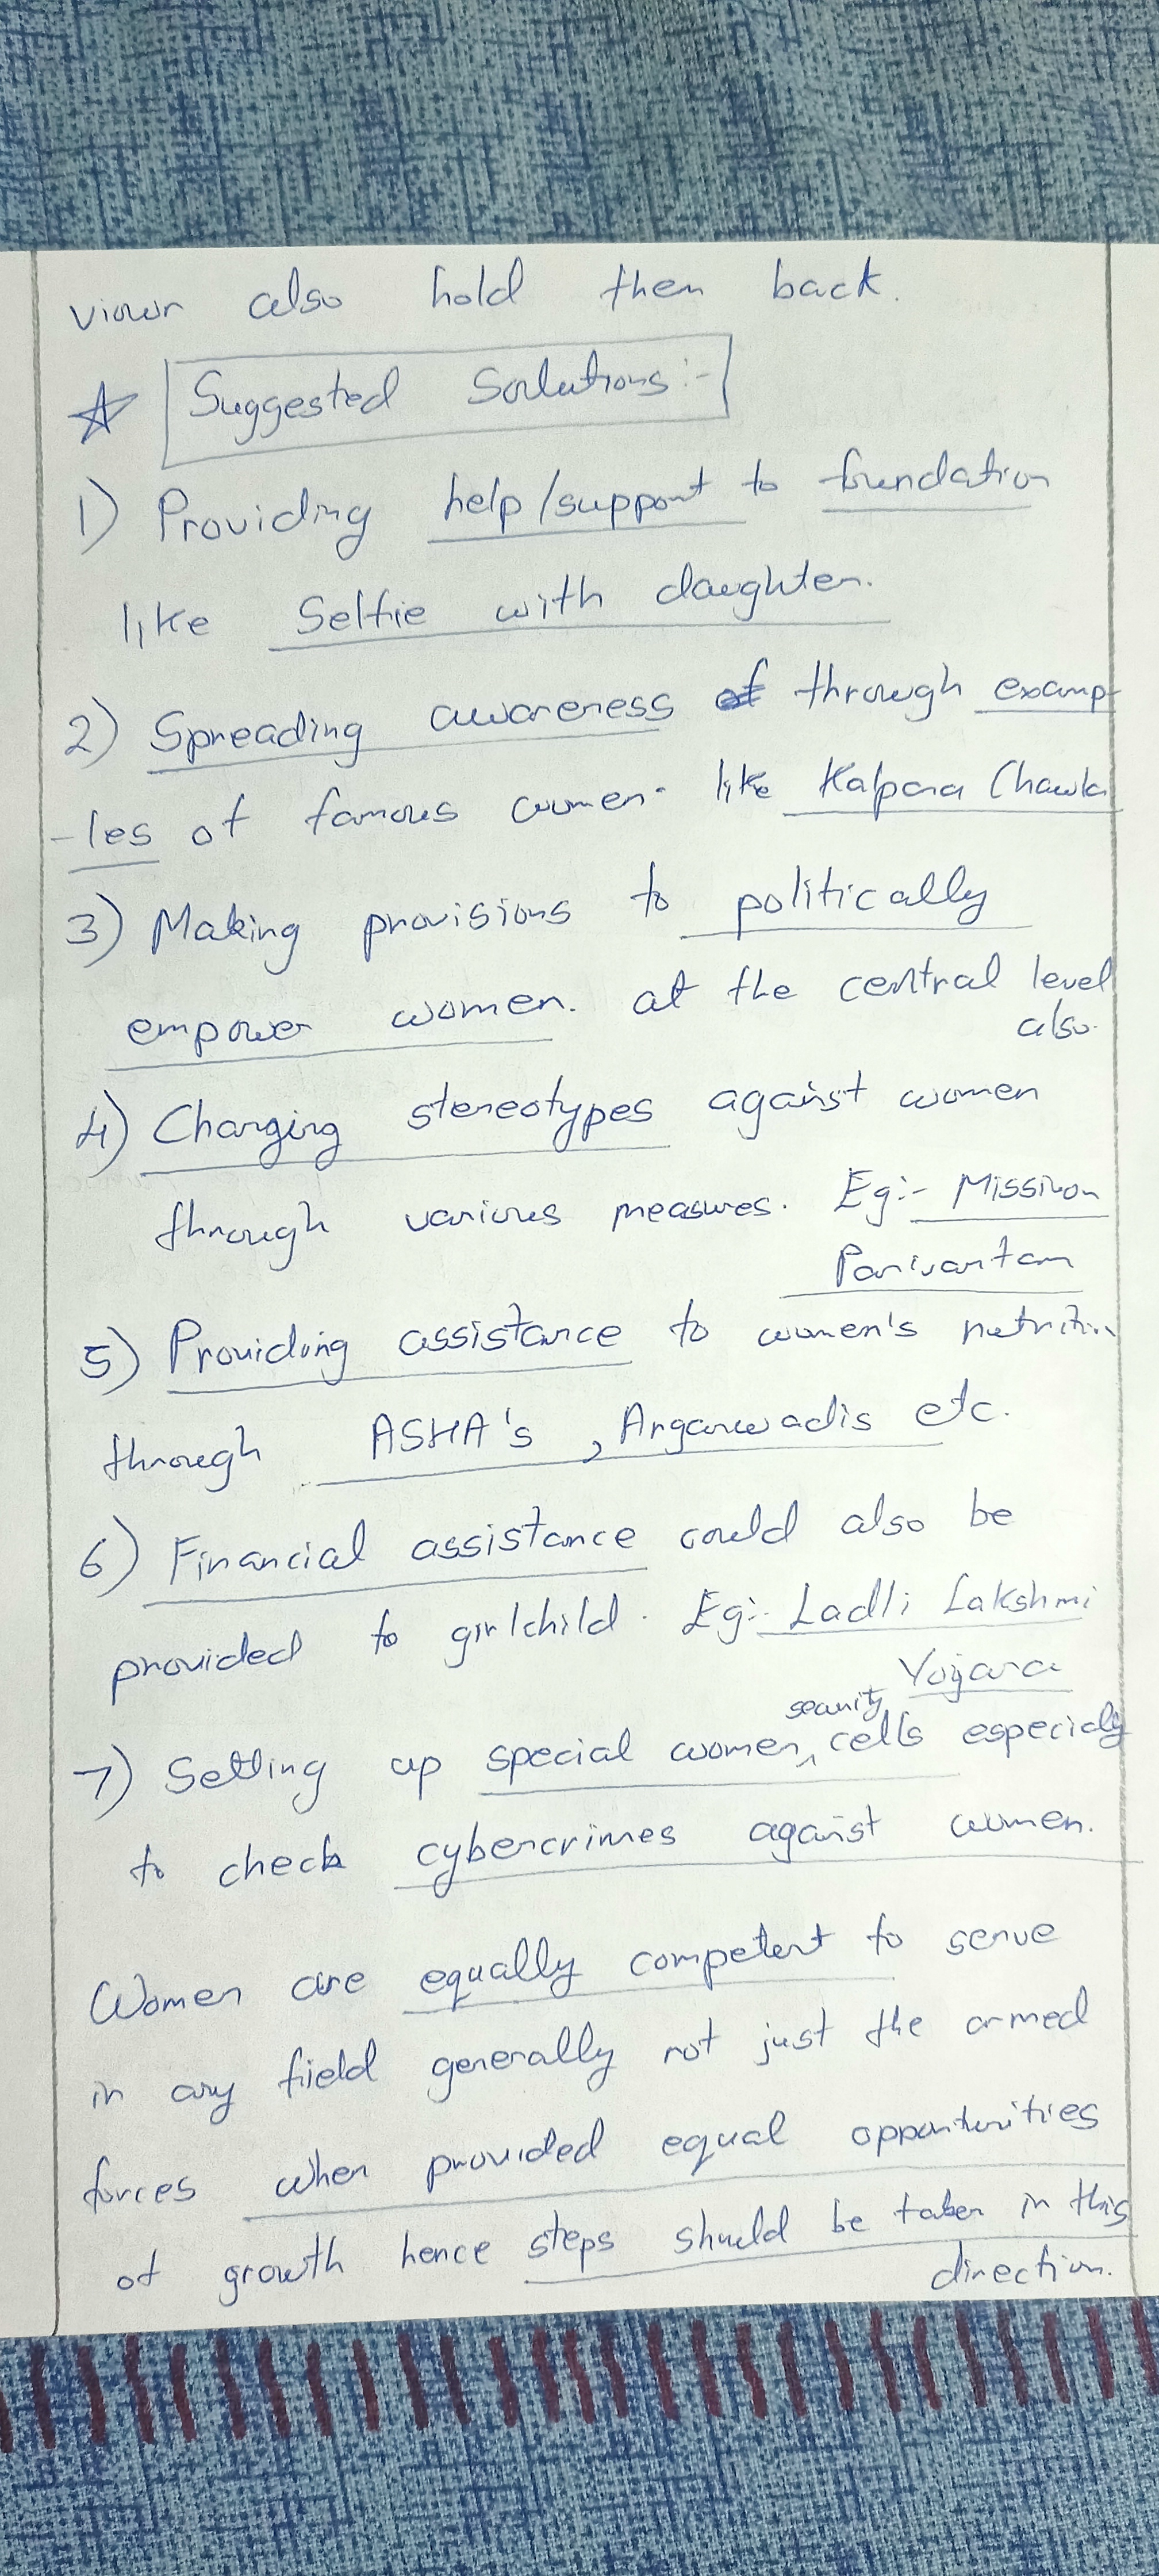 also hold them back.
☆ Suggested Soulutions :-
1) Providing help/support to foundation
like Selfie with daughter.
2) Spreading awareness of through examp-
-les of famous women like Kalpana Chawla
3) Making provisions to politically
empower women. at the central level
also.
4) Changing stereotypes against women
through various measures. Eg:- Mission
Parivartan
5) Providing assistance to women's nutrition
through ASHA's, Anganwadis etc.
6) Financial assistance could also be
provided to girlchild. Eg:- Ladli Lakshmi
Yojana
security
7) Setting up special women cells especialy
to check cybercrimes against women.
Women are equally competent to serve
in any field generally not just the armed
forces when provided equal opportunities
of growth hence steps should be taken in this
direction.